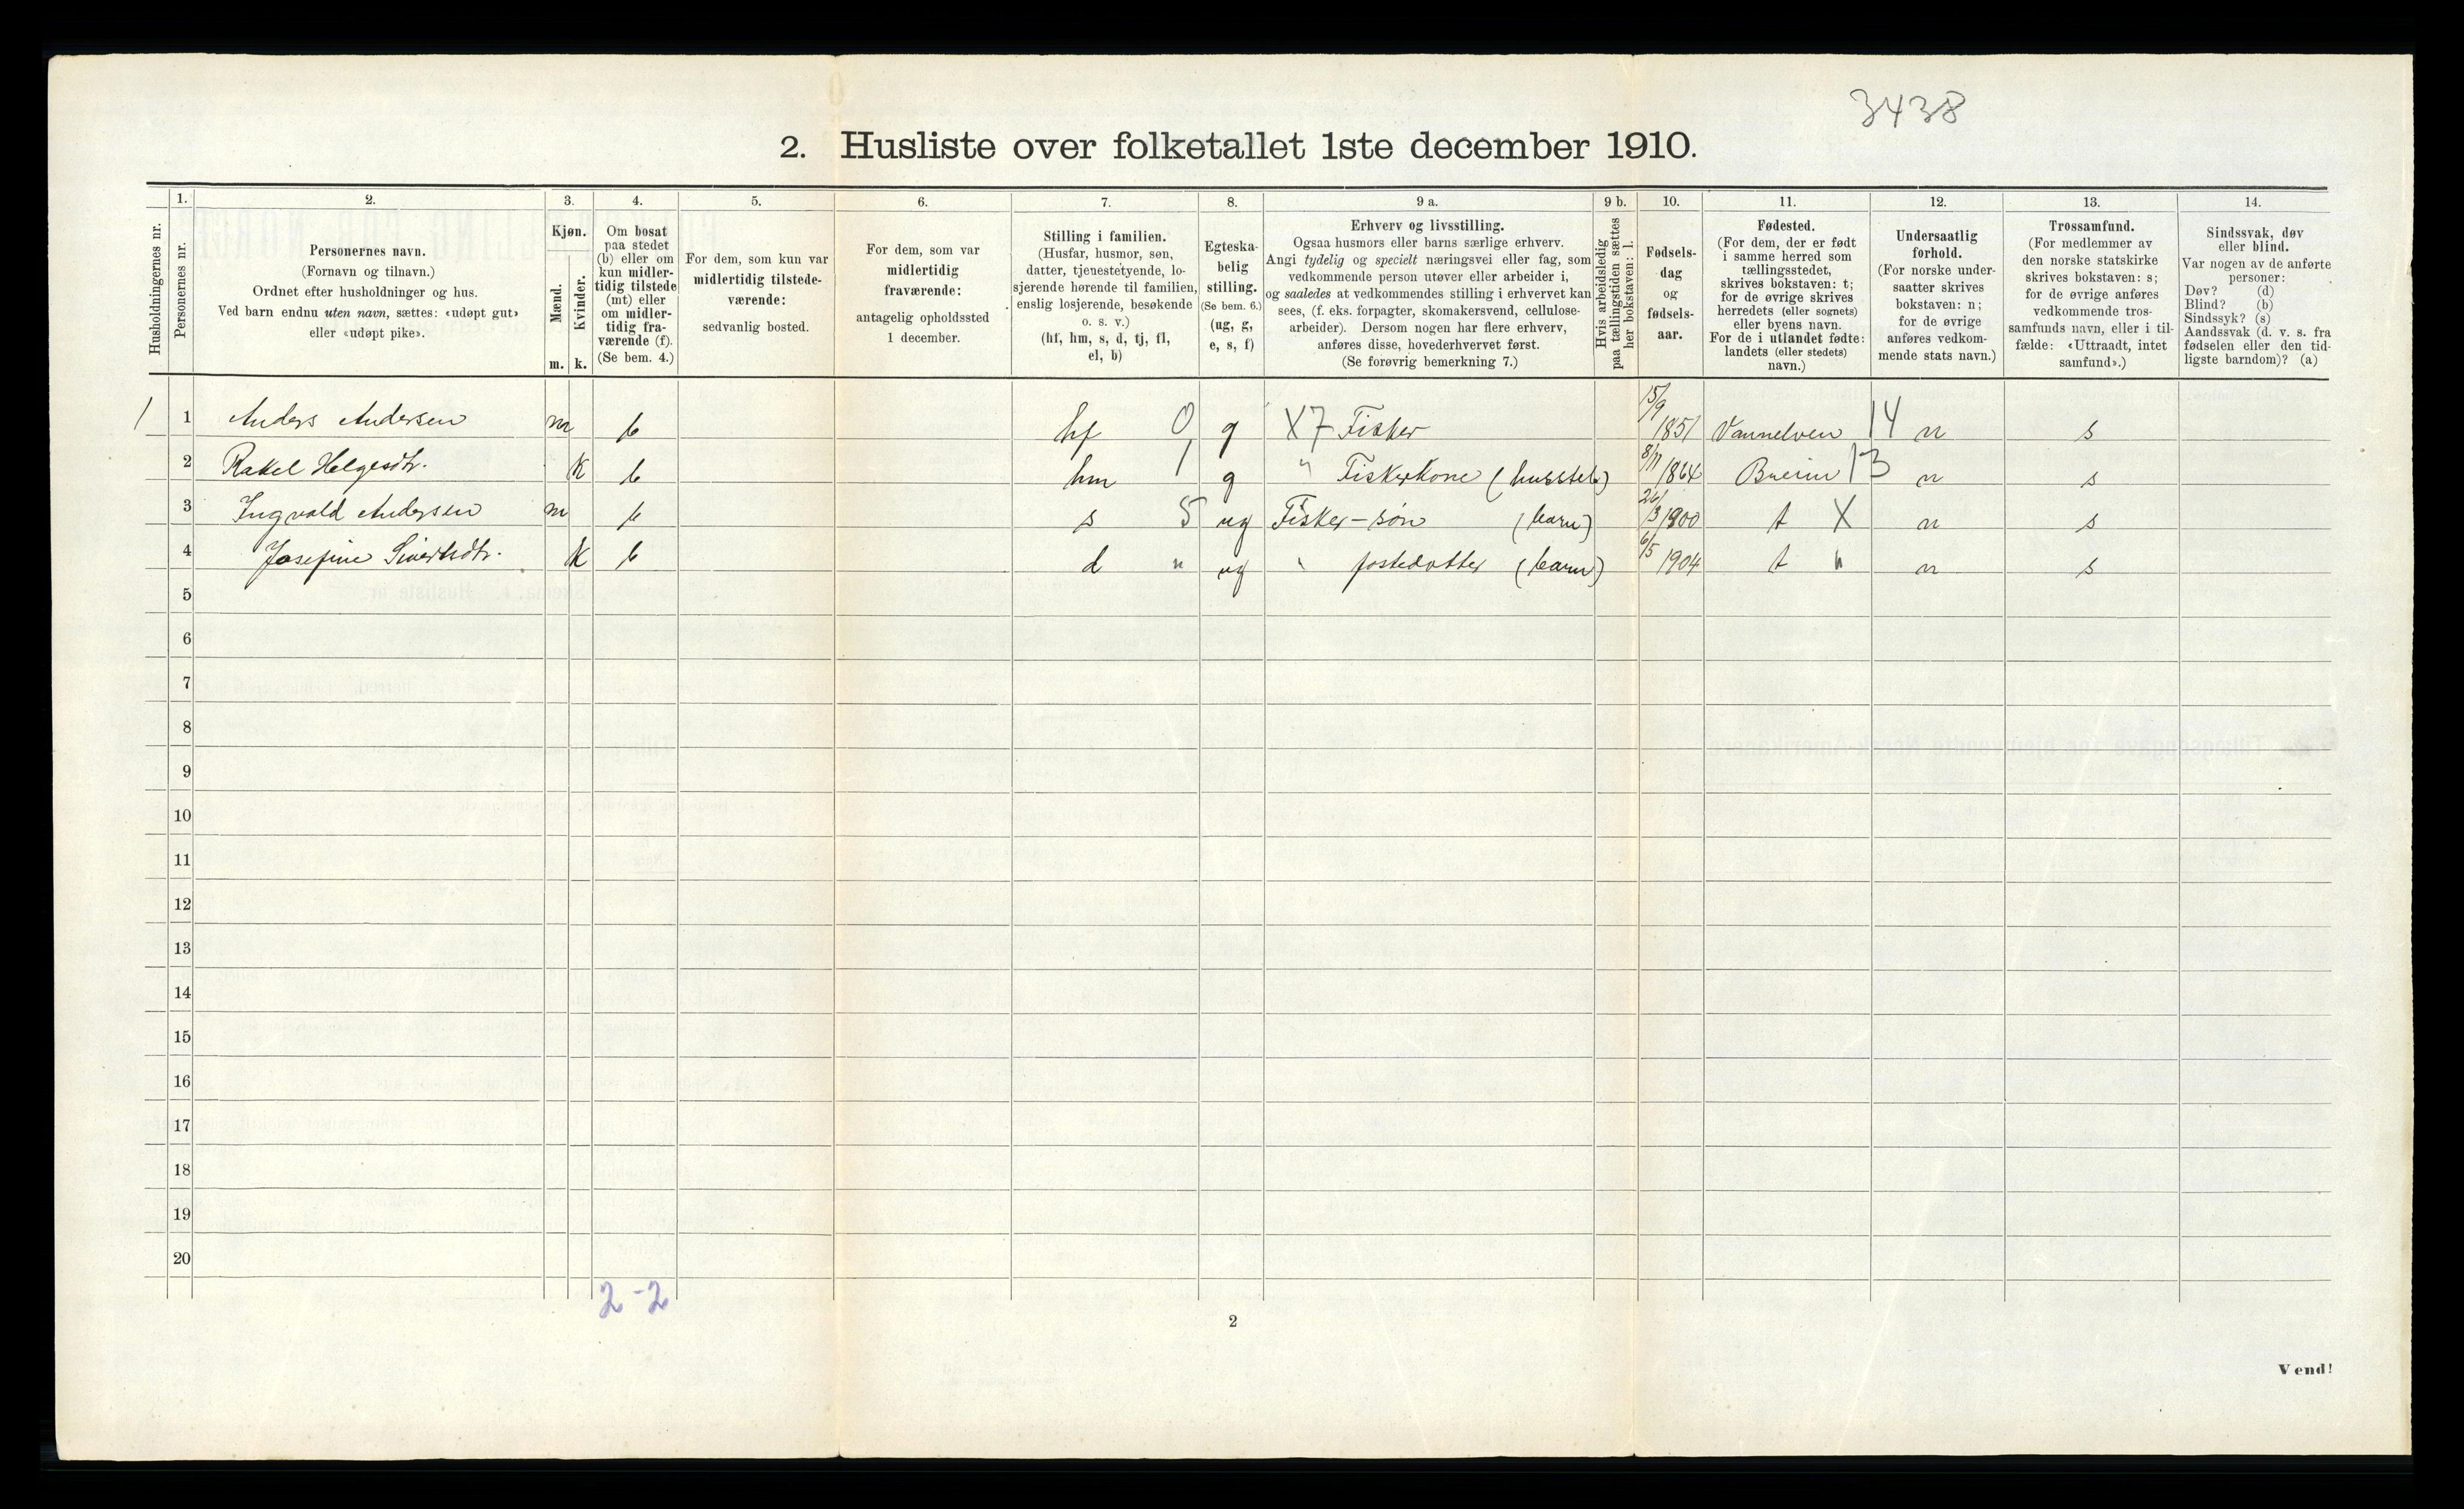 3438
2. Husliste over folketallet 1ste december 1910.
Husholdningernes nr.
1.
Personernes nr.
2.
Personernes navn.
(Fornavn og tilnavn.)
Ordnet efter husholdninger og hus.
Ved barn endnu uten navn, sættes: «udøpt gut»
eller «udøpt pike».
3.
Kjøn.
Mænd.
Kvinder.
m. k.
4.
Om bosat
paa stedet
(b) eller om
kun midler-
tidig tilstede
(mt) eller
om midler-
tidig fra-
værende (f).
(Se bem. 4.)
5.
For dem, som kun var
midlertidig tilstede-
værende:
sedvanlig bosted.
6.
For dem, som var
midlertidig
fraværende:
antagelig opholdssted
1 december.
7.
Stilling i familien.
(Husfar, husmor, søn,
datter, tjenestetyende, lo-
sjerende hørende til familien,
enslig losjerende, besøkende
o. s. v.)
(hf, hm, s, d, tj, fl,
el, b)
8.
Egteska-
belig
stilling.
(Se bem. 6.)
(ug, g,
e, s, f)
9 a.
Erhverv og livsstilling.
Ogsaa husmors eller barns særlige erhverv.
Angi tydelig og specielt næringsvei eller fag, som
vedkommende person utøver eller arbeider i,
og saaledes at vedkommendes stilling i erhvervet kan
sees, (f. eks. forpagter, skomakersvend, cellulose-
arbeider). Dersom nogen har flere erhverv,
anføres disse, hovederhvervet først.
(Se forøvrig bemerkning 7.)
9 b.
Hvis arbeidsledig
paa tællingstiden sættes
her bokstaven: l.
10.
Fødsels-
dag
og
fødsels-
aar.
11.
Fødested.
(For dem, der er født
i samme herred som
tællingsstedet,
skrives bokstaven: t;
for de øvrige skrives
herredets (eller sognets)
eller byens navn.
For de i utlandet fødte:
landets (eller stedets)
navn.)
12.
Undersaatlig
forhold.
(For norske under-
saatter skrives
bokstaven: n;
for de øvrige
anføres vedkom-
mende stats navn.)
13.
Trossamfund.
(For medlemmer av
den norske statskirke
skrives bokstaven: s;
for de øvrige anføres
vedkommende tros-
samfunds navn, eller i til-
fælde: «Uttraadt, intet
samfund».)
14.
Sindssvak, døv
eller blind.
Var nogen av de anførte
personer:
Døv? (d)
Blind? (b)
Sindssyk? (s)
Aandssvak (d. v. s. fra
fødselen eller den tid-
ligste barndom)? (a)
1 1 Anders Andersen m b hf 0 g X7 Fisker 15/9 1851 Vannelven 14 n s
2 Rakel Helgesdtr. k b hm 1 g " Fiskerkone (husstel) 8/11 1864 13 n s
3 Ingvald Andersen m b s 5 ug Fisker-søn (barn) 26/3 1900 t X n s
4 Josefine Sivertsdtr. k b d " ug " fostedatter (barn) 6/5 1904 t " n s
5
6
7
8
9
10
11
12
13
14
15
16
17
18
19
20
2-2
2
Vend!